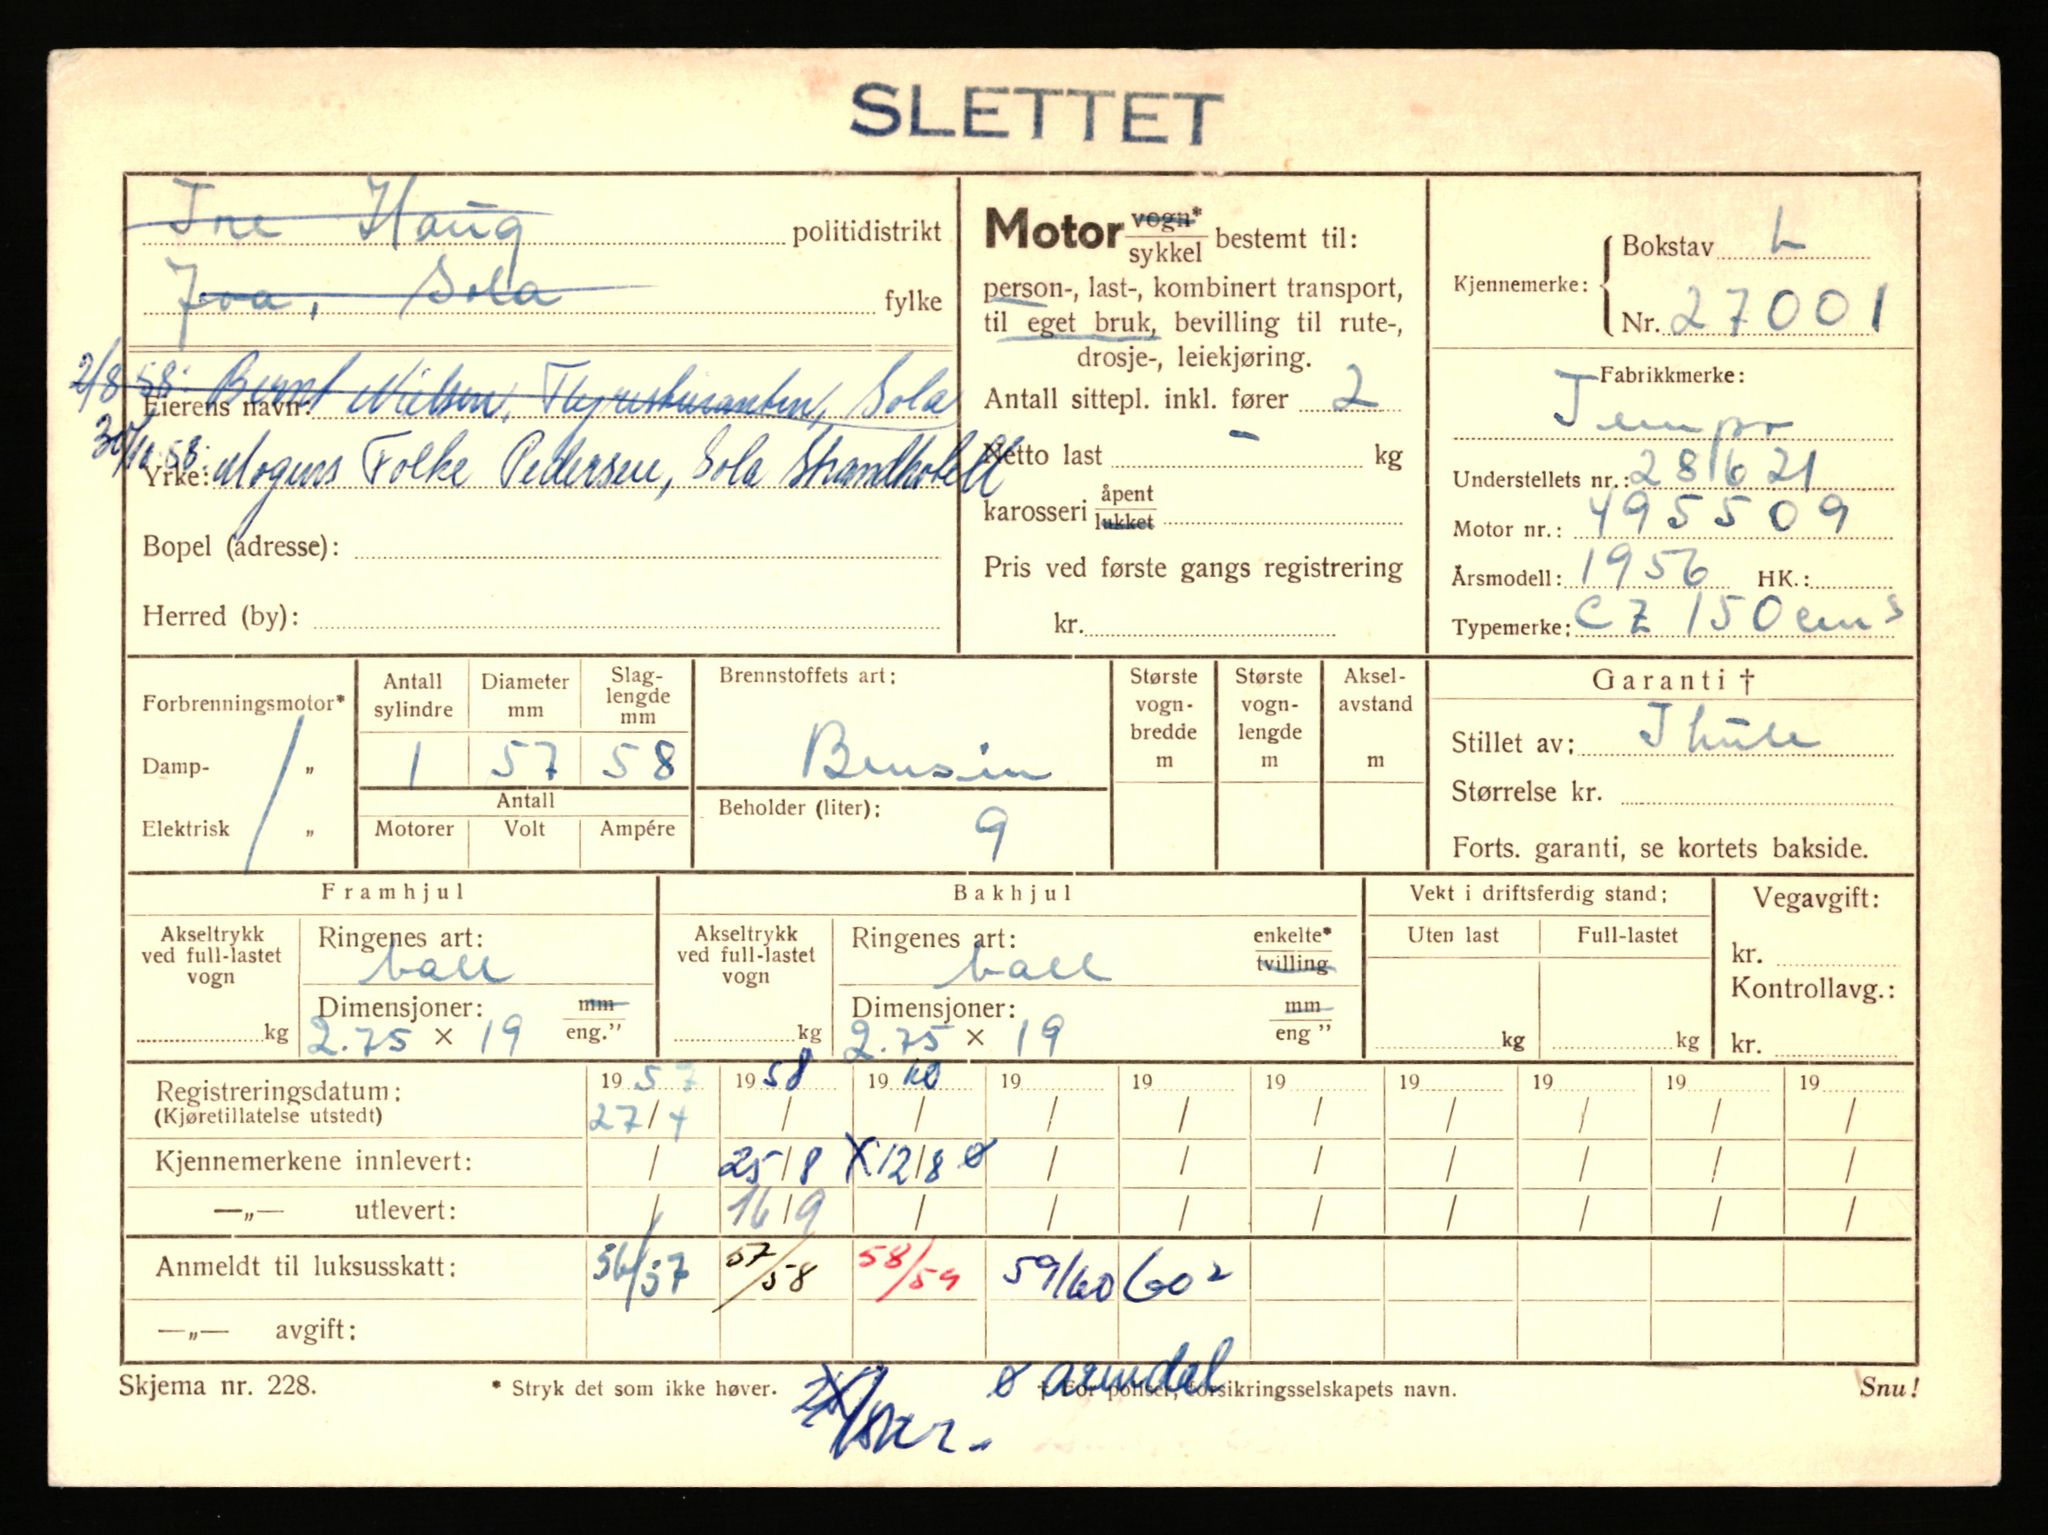 SLETTET
Tre Haug politidistrikt
Joa, Sola fylke
2/8 58: Bernt Nielsen, Flyrestauranten, Sola
Eierens navn:
30/10 58:
Yrke: Mogens Folke Pedersen, Sola Strandhotell
Bopel (adresse):
Herred (by):
Motor vogn* sykkel bestemt til:
person-, last-, kombinert transport,
til eget bruk, bevilling til rute-,
drosje-, leiekjøring.
Antall sittepl. inkl. fører 2
Netto last - kg
karosseri åpent lukket
Pris ved første gangs registrering
kr.
Kjennemerke: Bokstav L
Nr. 27001
Fabrikkmerke:
Tempo
Understellets nr.: 281621
Motor nr.: 495509
Årsmodell: 1956 HK.:
Typemerke: CZ 150 cm³
Forbrenningsmotor*
Damp- „
Elektrisk „
Antall sylindre Diameter mm Slag-lengde mm
1 57 58
Antall
Motorer Volt Ampére
Brennstoffets art:
Bensin
Beholder (liter): 9
Største vogn-bredde m
Største vogn-lengde m
Aksel-avstand m
Garanti †
Stillet av: Thule
Størrelse kr.
Forts. garanti, se kortets bakside.
Framhjul
Akseltrykk ved full-lastet vogn kg
Ringenes art: ball
Dimensjoner: mm
2.75 × 19 eng.”
Bakhjul
Akseltrykk ved full-lastet vogn kg
Ringenes art: ball enkelte* tvilling
Dimensjoner: mm
2.75 × 19 eng ”
Vekt i driftsferdig stand:
Uten last Full-lastet
kg kg
Vegavgift:
kr.
Kontrollavg.:
kr.
Registreringsdatum: 19 57 19 58 19 60 19 19 19 19 19 19 19
(Kjøretillatelse utstedt) 27/4 / / / / / / / / /
Kjennemerkene innlevert: / 25/8 X 12/8 ø / / / / / / /
—„— utlevert: / 16/9 / / / / / / / /
Anmeldt til luksusskatt: 56/57 57/58 58/59 59/60 60²
—„— avgift:
Skjema nr. 228. * Stryk det som ikke høver. † For poliser, forsikringsselskapets navn. Snu!
ø Arendal